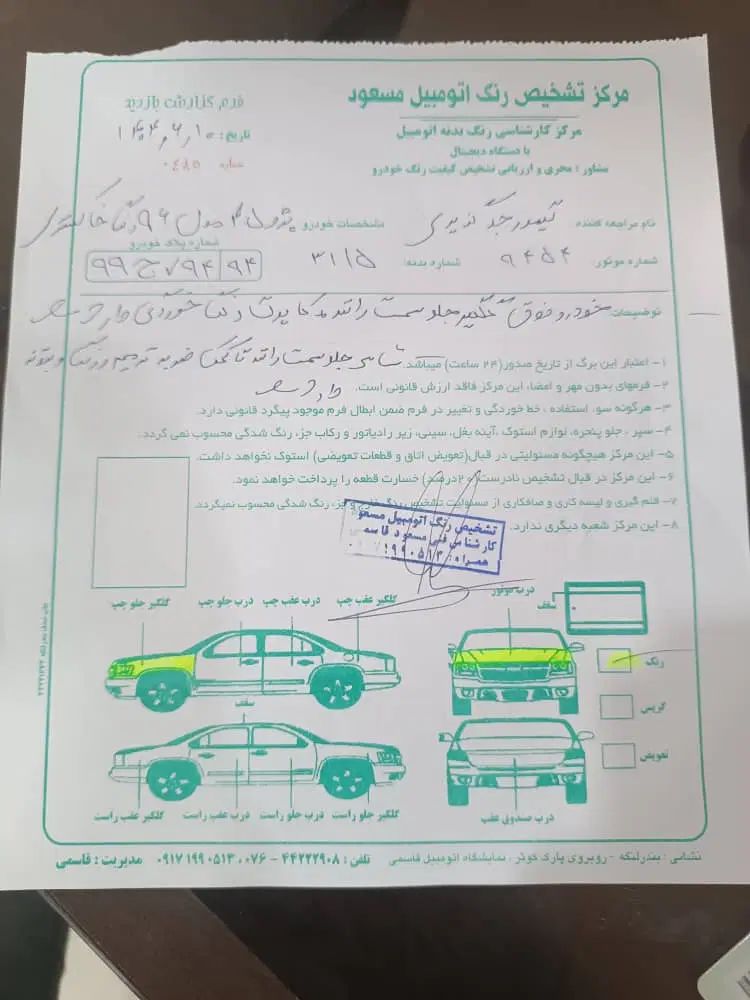 مرکز تشخیص رنگ اتومبیل مسعود
مرکز کارشناسی رنگ بدنه اتومبیل
با دستگاه دیجیتال
مشاور ؛ مجری و ارزیابی تشخیص کیفیت رنگ خودرو
فرم گزارش بازدید
تاریخ : ۱۴۰۴٫۶٫۱۰
شماره ۰۴۸۵
نام مراجعه کننده: تیمور
مشخصات خودرو پژو مدل ۹۶ رنگ خاکستری
شماره موتور: ۹۴۵۴
شماره بدنه: ۳۱۱۵
شماره پلاک خودرو
۹۹ ج ۷۹۴ ۹۴
توضیحات: خودرو فوق گلگیر جلو سمت راننده کاپوت رنگ خوردگی دارد
شاسی جلو سمت راننده ضربه ترمیم و رنگ و بتونه
دارد
۱- اعتبار این برگ از تاریخ صدور (۲۴ ساعت) میباشد.
۲- فرمهای بدون مهر و امضاء، این مرکز فاقد ارزش قانونی است.
۳- هرگونه سوء استفاده ، خط خوردگی و تغییر در فرم ضمن ابطال فرم موجود پیگرد قانونی دارد.
۴- سپر ، جلو پنجره، لوازم استوک، آینه بغل، سینی، زیر رادیاتور و رکاب جزء رنگ شدگی محسوب نمی گردد.
۵- این مرکز هیچگونه مسئولیتی در قبال (تعویض اتاق و قطعات تعویضی) استوک نخواهد داشت.
۶- این مرکز در قبال تشخیص نادرست (۲۰ درصد) خسارت قطعه را پرداخت خواهد نمود.
۷- قلم گیری و لیسه کاری و صافکاری از مسئولیت تشخیص رنگ خارج و جزء رنگ شدگی محسوب نمیگردد.
۸- این مرکز شعبه دیگری ندارد.
تشخیص رنگ اتومبیل مسعود
کارشناس فنی مسعود قاسمی
همراه:
درب موتور
سقف
گلگیر عقب چپ
درب عقب چپ
درب جلو چپ
گلگیر جلو چپ
رنگ
گریس
تعویض
سقف
گلگیر جلو راست
درب جلو راست
درب عقب راست
گلگیر عقب راست
درب صندوق عقب
نشانی : بندرلنگه - روبروی پارک کوثر ، نمایشگاه اتومبیل قاسمی
تلفن : ۴۴۲۲۲۹۰۸ - ۰۷۶ ، ۰۹۱۷ ۱۹۹ ۰۵۱۳
مدیریت : قاسمی